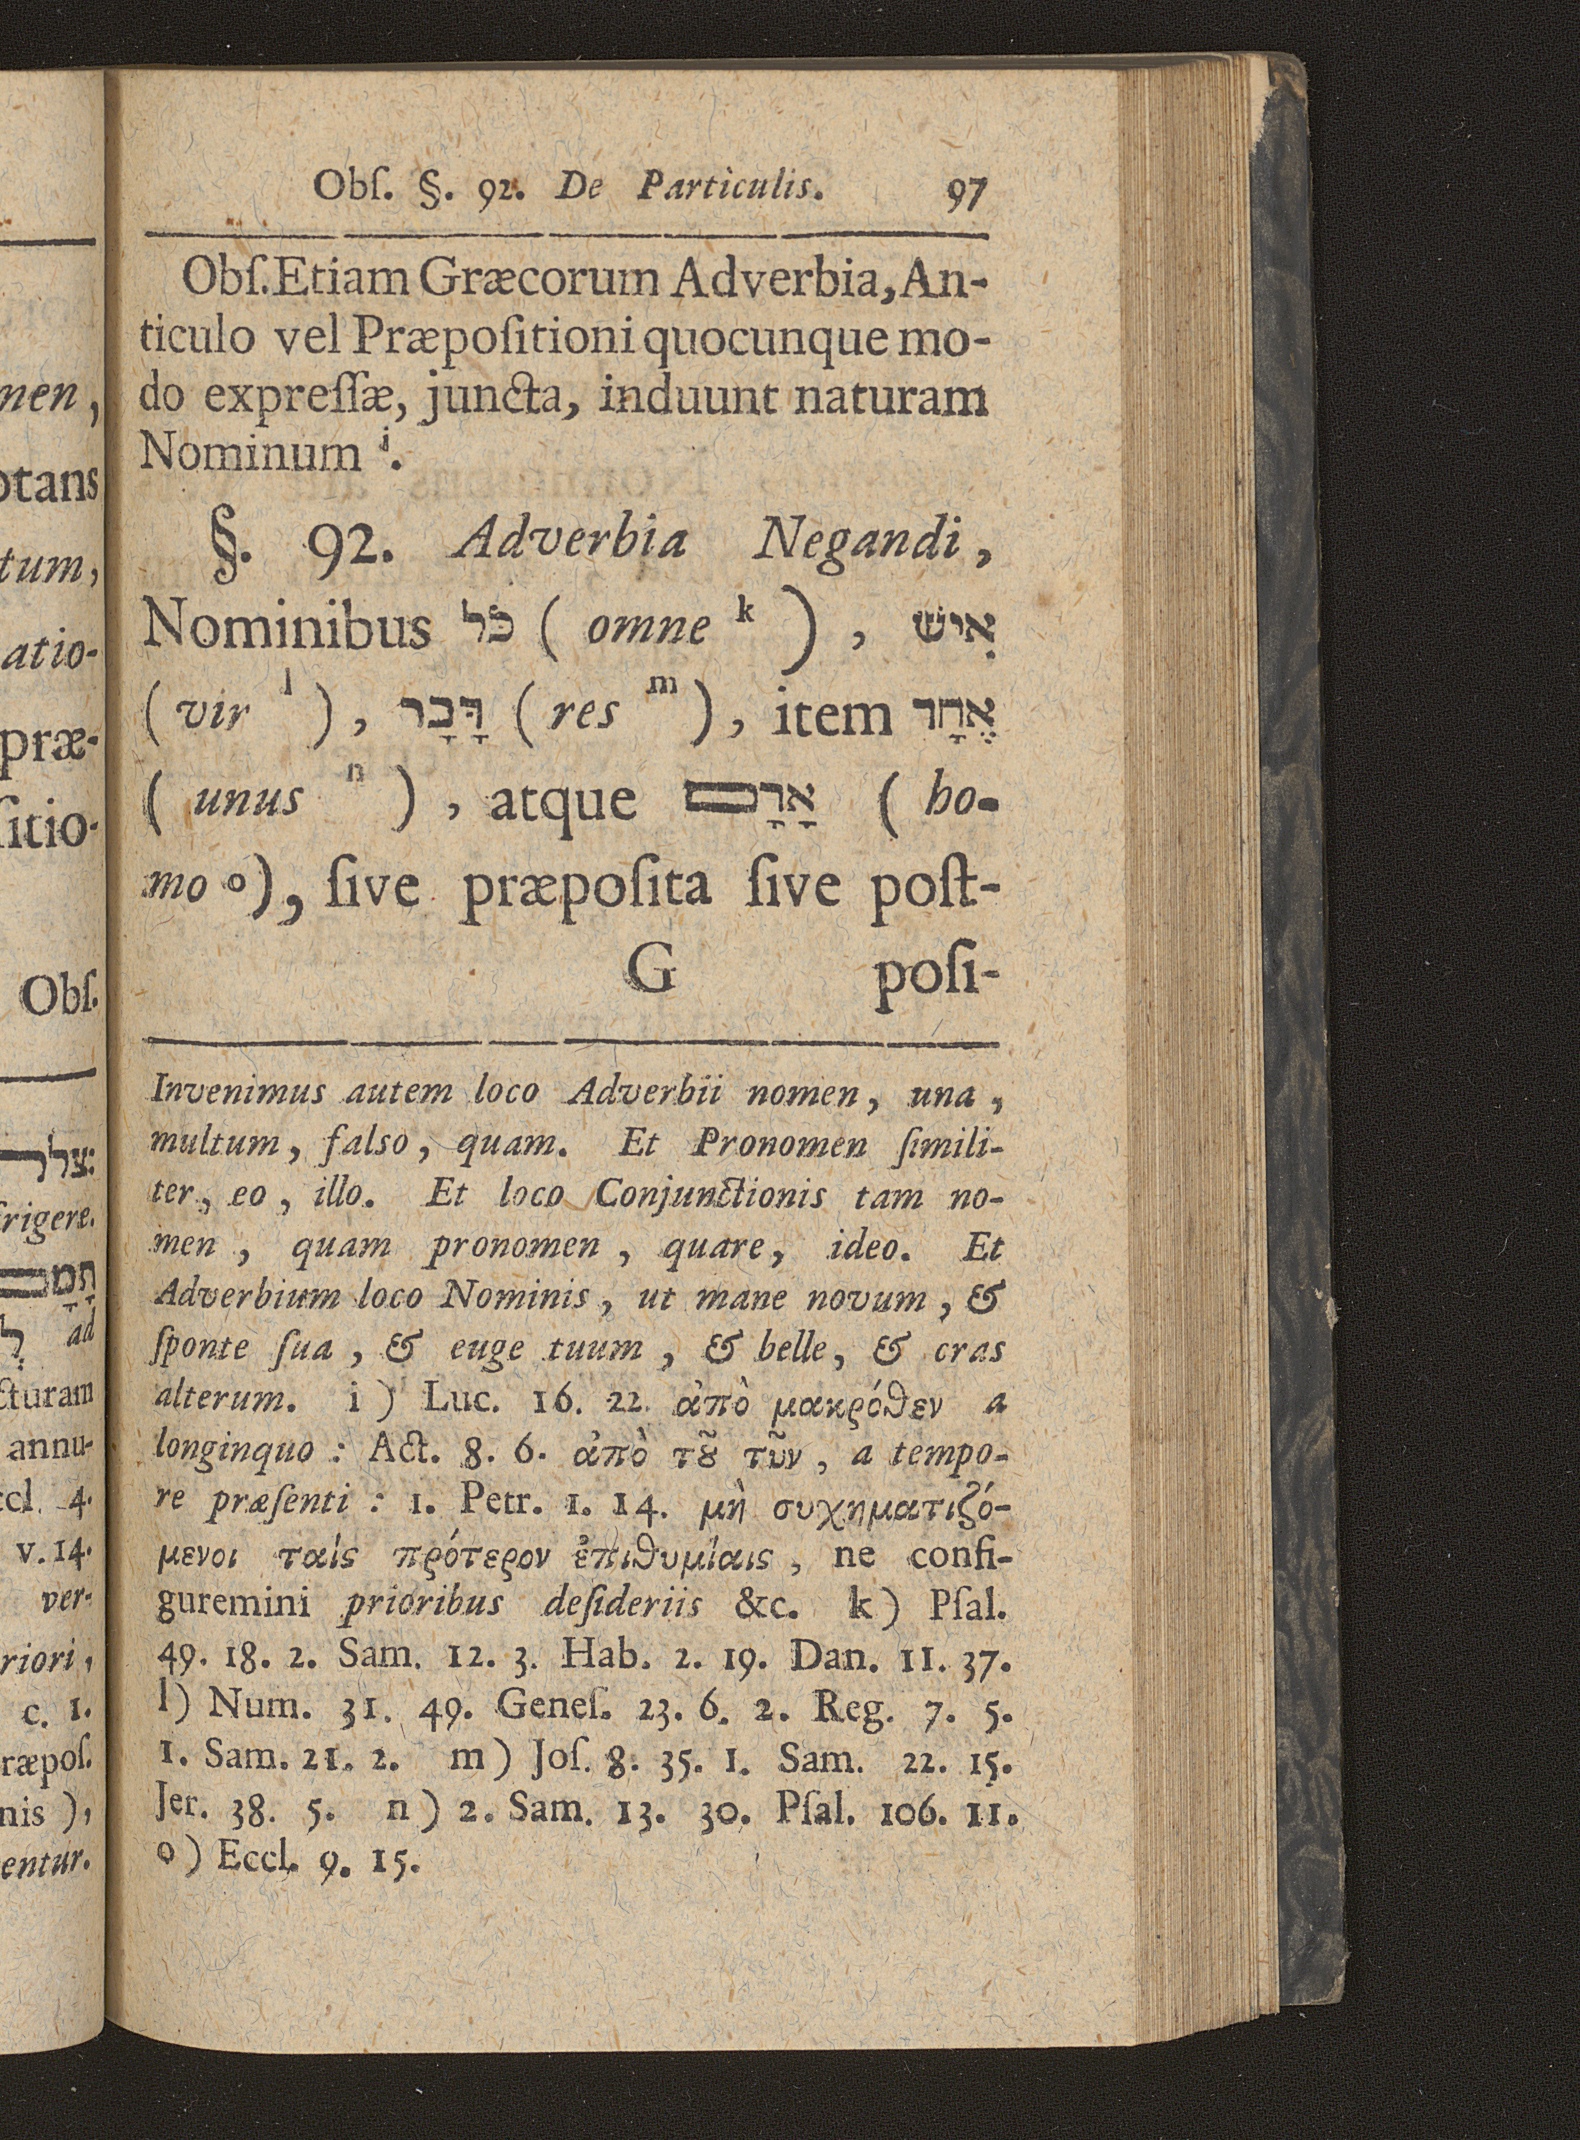 Obſ. §. 92. De Particulis. 97
Obſ. Etiam Græcorum Adverbia, An-
ticulo vel Præpoſitioni quocunque mo-
do expreſſæ, juncta, induunt naturam
Nominum i.
§. 92. Adverbia Negandi,
Nominibus כֹּל ( omne k ) , אִישׁ
( vir l ) , דָּבָר ( res m ) , item אֶחָד
( unus n ) , atque אָדָם ( ho-
mo o), ſive præpoſita ſive poſt-
G poſi-
Invenimus autem loco Adverbii nomen, una,
multum, falso, quam. Et Pronomen ſimili-
ter, eo, illo. Et loco Conjunctionis tam no-
men, quam pronomen, quare, ideo. Et
Adverbium loco Nominis, ut mane novum, &
ſponte ſua, & euge tuum, & belle, & cras
alterum. i ) Luc. 16. 22. ἀπὸ μακρόθεν a
longinquo : Act. 8. 6. ἀπὸ τοῦ τῦν, a tempo-
re præſenti : 1. Petr. 1. 14. μὴ συχηματιζό-
μενοι ταίς πρότερον ἐπιθυμίαις, ne confi-
guremini prioribus deſideriis &c. k ) Pſal.
49. 18. 2. Sam. 12. 3. Hab. 2. 19. Dan. 11. 37.
l ) Num. 31. 49. Geneſ. 23. 6. 2. Reg. 7. 5.
1. Sam. 21. 2. m ) Joſ. 8. 35. 1. Sam. 22. 15.
Jer. 38. 5. n ) 2. Sam. 13. 30. Pſal. 106. 11.
o ) Eccl. 9. 15.